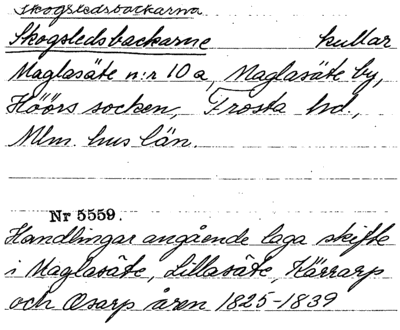 Skogsledsbackarna
Skogsledsbackarne kullar
Maglasäte n:r 10 a, Maglasäte by,
Höörs socken, Frosta hd.,
Mlm. hus län.
Nr 5559.
Handlingar angående laga skifte
i Maglasäte, Lillasäte, Kärrarp
och Osarp åren 1825-1839